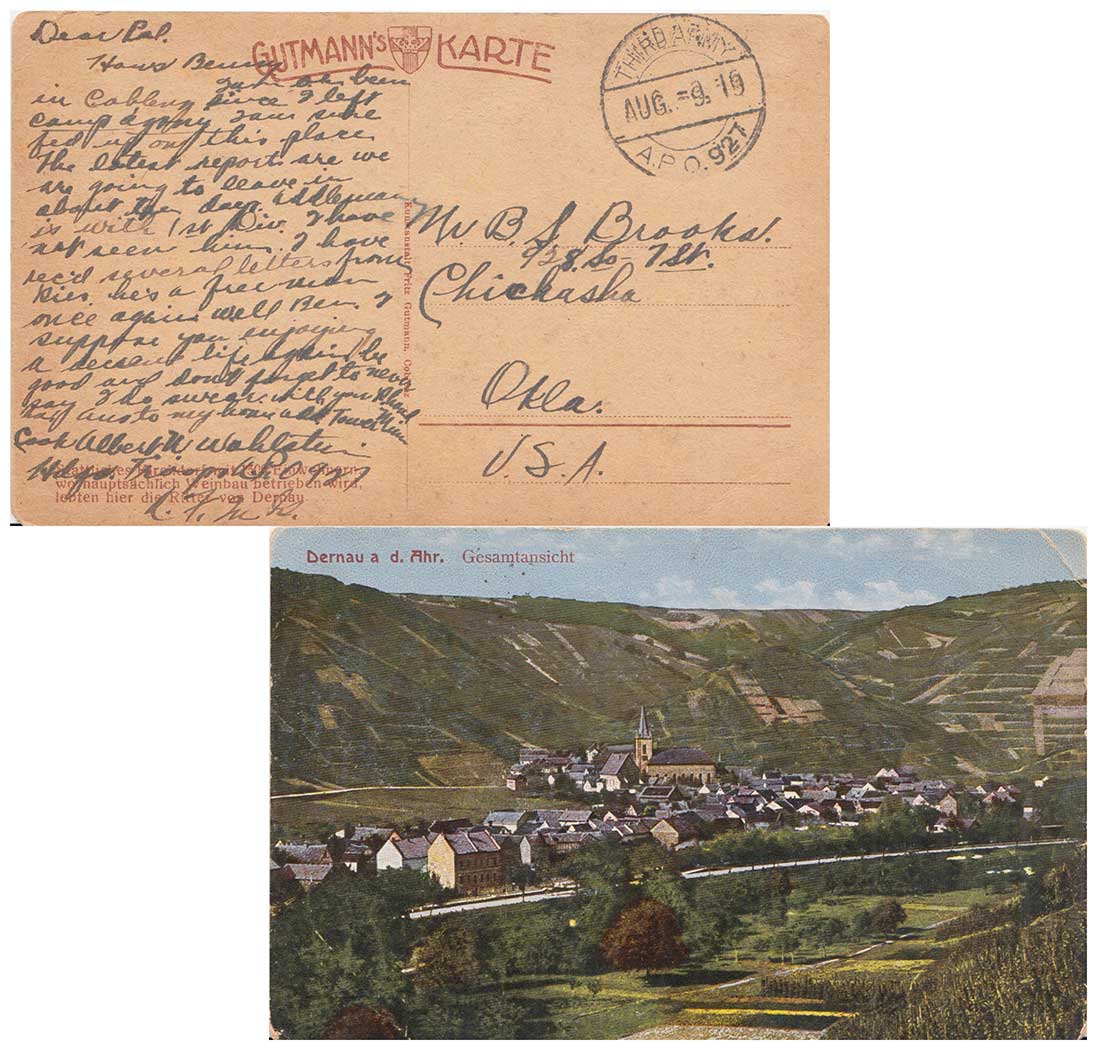 Dear Pal.
GUTMANN'S KARTE
Hows Benny
I am ok been
in Coblenz since I left
camp agony I am sure
fed up on this place
The latest reports are we
are going to leave in
about ten days. Addleman
is with 1st Div. I have
not seen him. I have
rec'd several letters from
he's a free man
once again well Ben. I
suppose you enjoying
a decsent life again be
good and don't forget to never
say I do swear. will you
ans to my home add
Cook Albert W Wahlstein
mit Einwohnern,
wo hauptsächlich Weinbau betrieben wird,
lebten hier die Ritter von Dernau
THIRD ARMY
AUG. -9. 19
A.P.O. 927
Kunstanstalt Fritz Gutmann,
Mr B. S Brooks.
928. So - 7 St.
Chickasha
Okla.
U.S.A.
Dernau a d. Ahr. Gesamtansicht